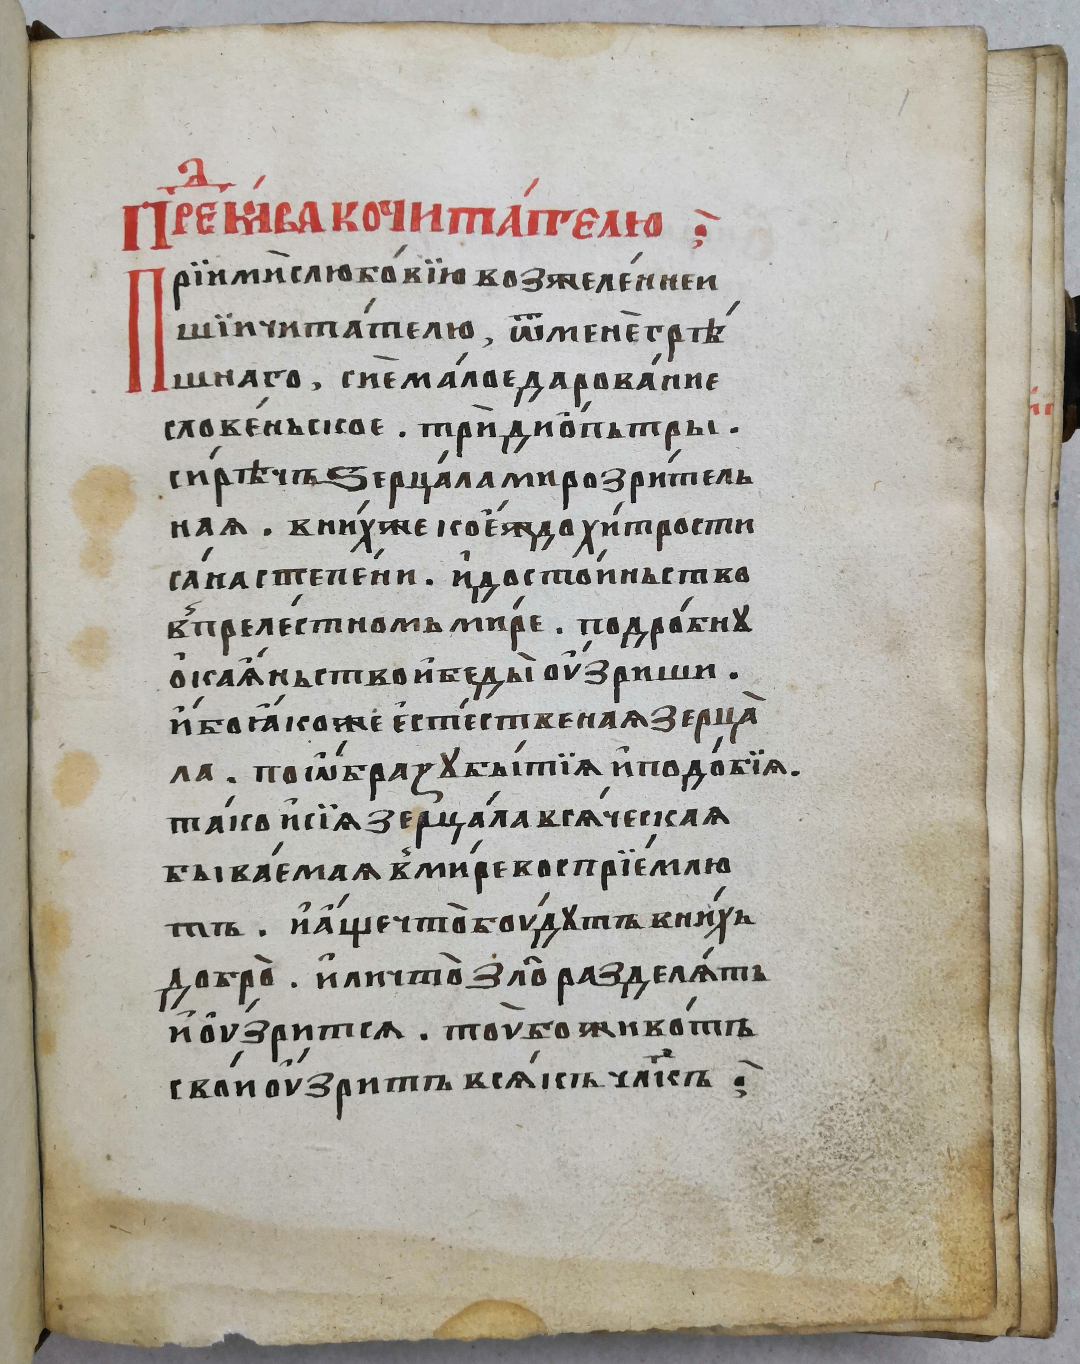 Пред̾ъявa ко читáтелю
Прїими̏ с любо́вїю возжеле́нней
шїи читáтелю, ѿ менѐ грѣ́
шнаго, сиѐ мáлое даровáние
слове́ньское. трѝ дио́пьтры.
си́рѣчь ѕерцáла мирозри́тель
ная. в ни́хже кое́ждо хи́трости
сáна степе́ни. и҆ досто́иньство
в̾ преле́стномъ ми́ре. подро́бнꙋ
ѻ҆кая́ньство и҆ беды̀ оу҆́зриши.
и҆́бо я́коже е҆сте́ственая зерцà
ла. по ѡ҆́бразꙋ бытїя и҆ подо́бїя.
тáко и҆ сїя зерцáла вся́ческая
бывáемая в̾ ми́ре воспрїе́млю
тъ. и҆ а҆́ще чтò бꙋ́дꙋтъ в ни́хъ
добрò. и҆ли чтò злò разделя́ть
и҆ оу҆́зрится. то оу҆̀бо живо́тъ
свои оу҆́зритъ вся́къ чл҃къ